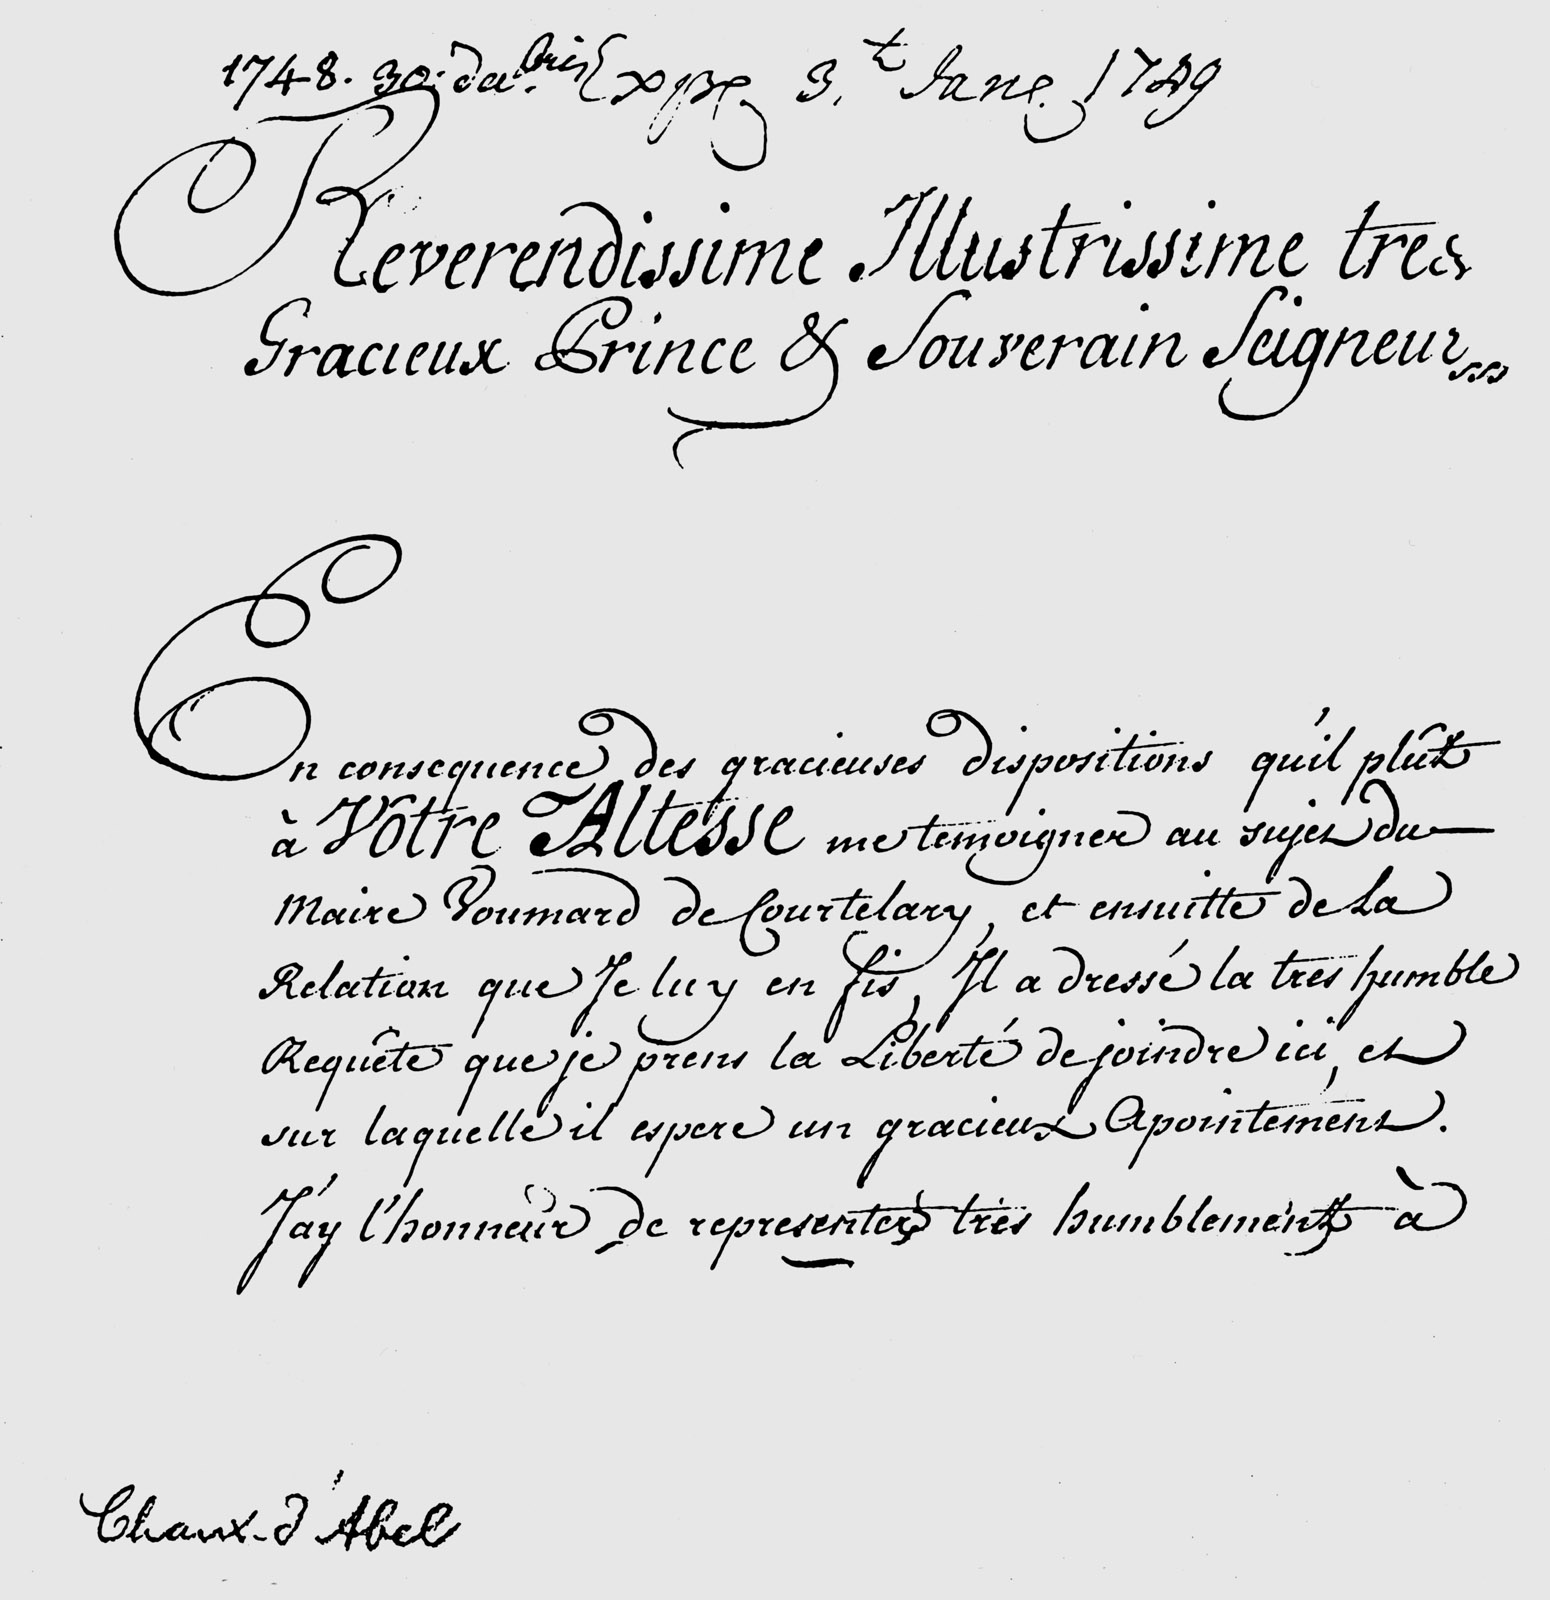 1748. 30. Xbris Exp. 3.t Jane. 1749
Reverendissime Illustrissime tres
Gracieux Prince & Souverain Seigneur
En consequence des gracieuses dispositions qu'il plût
à Vôtre Altesse me temoigner au sujet du
Maire Voumard de Courtelary, et ensuitte de La
Relation que Je luy en fis, Il a dressé la tres humble
Requête que je prens la Liberté de joindre ici, et
sur laquelle il espere un gracieux Apointement.
J'ay l'honneur de representer très humblement à
Chaux-d'Abel